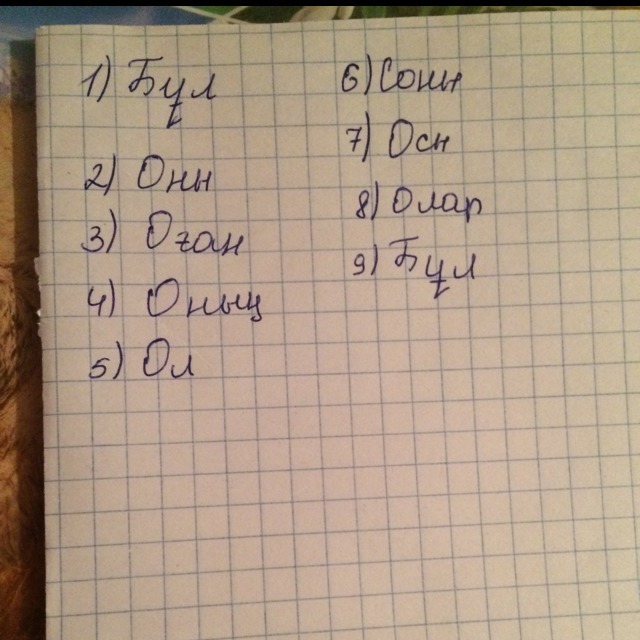 1) Бұл
2) Оны
3) Оған
4) Оның
5) Ол
6) Соны
7) Осы
8) Олар
9) Бұл